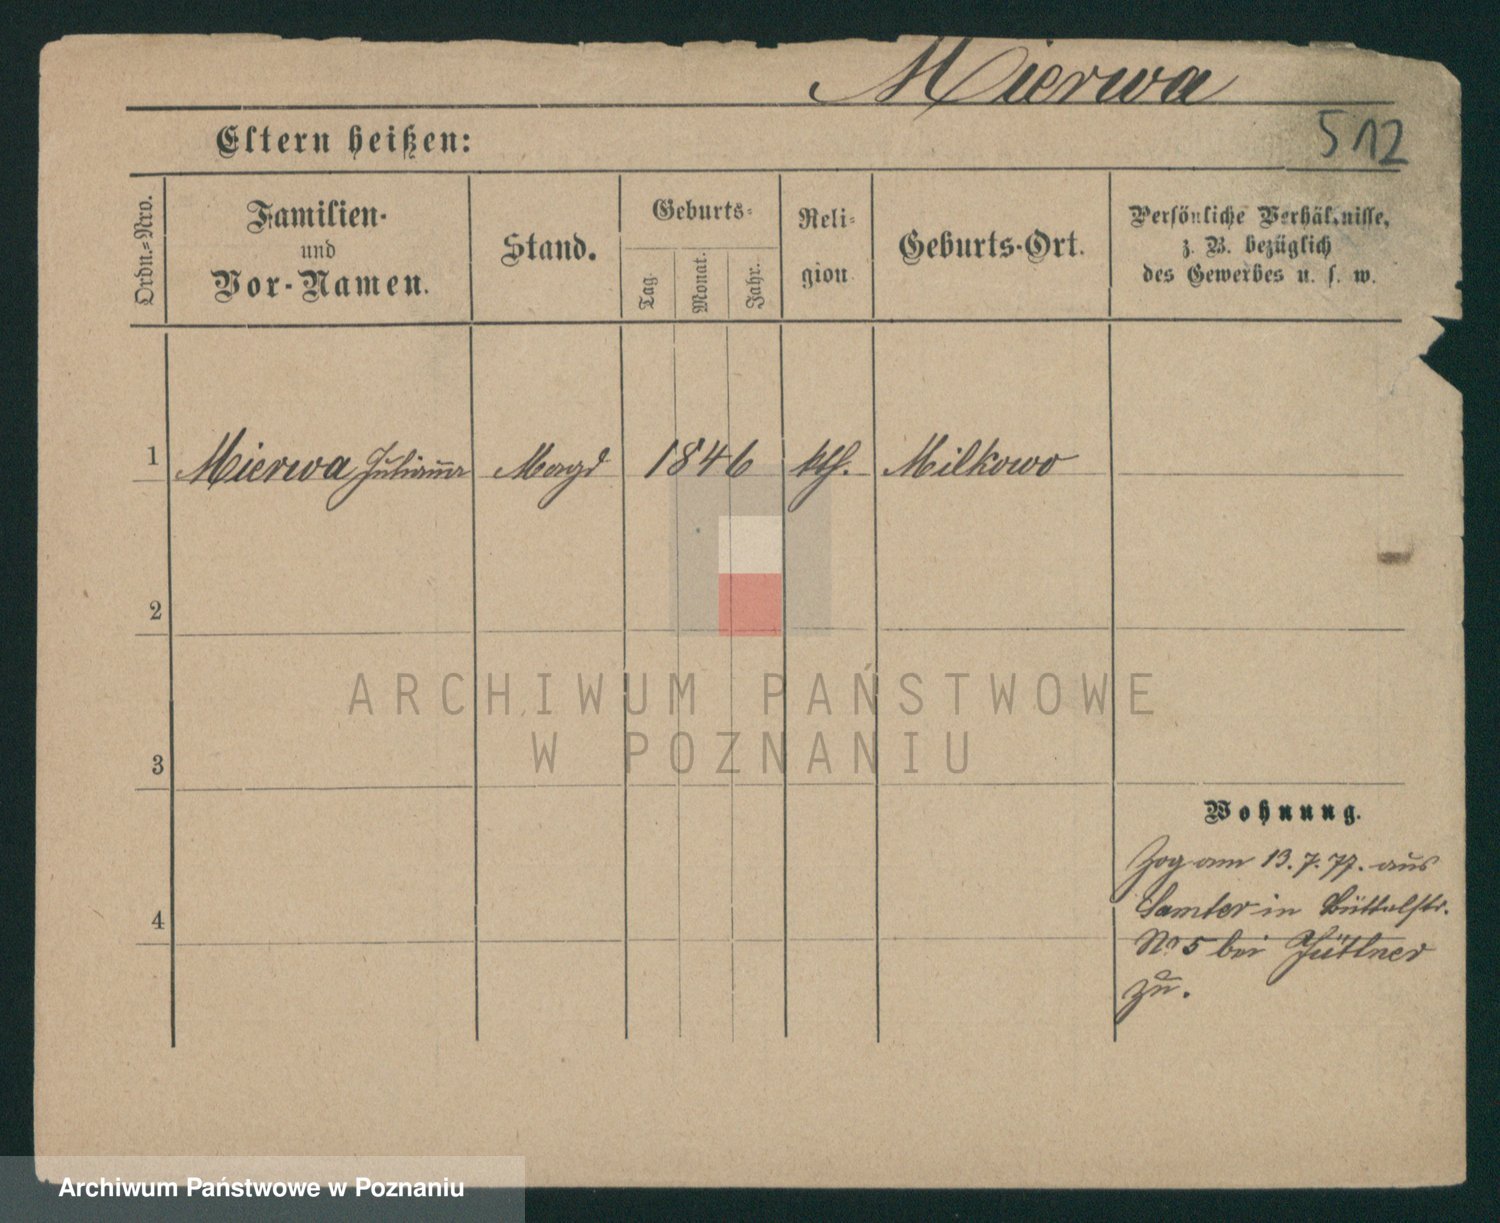 Mierwa
512
Eltern heißen:
Ordn.-Nro.
Familien-
und
Vor-Namen.
Stand.
Geburts-
Tag.
Monat.
Jahr.
Reli-
gion
Geburts-Ort.
Persönliche Verhältnisse,
z. B. bezüglich
des Gewerbes u. s. w.
1 Mierwa Julianna Magd 1846 kth. Milkowo
2
3
4
Wohnung.
Zog am 13.7.77. aus
Samter in Büttelstr.
No 5 bei
zu.
ARCHIWUM PAŃSTWOWE
W POZNANIU
Archiwum Państwowe w Poznaniu